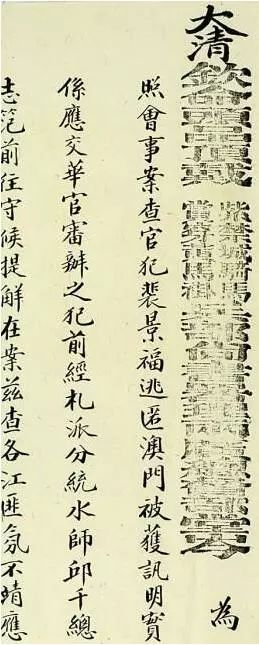 大清欽命頭品頂戴
紫禁城騎馬
賞穿黃馬褂
兵部尚書署理兩廣總督部堂岑
為
照會事案查官犯裴景福逃匿澳門被獲訊明實
係應交華官審辦之犯前經札派分統水師邱千總
志范前往守候提解在案茲查各江匪氛不靖應